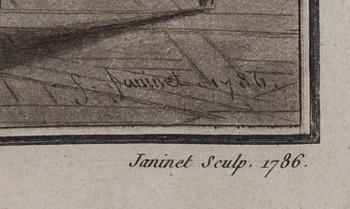 F. Janinet 1786.
Janinet Sculp. 1786.